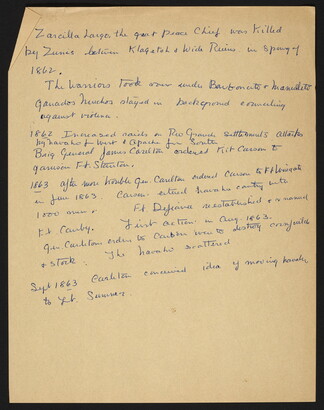 Zarcilla Largo, the great Peace Chief was killed
by Zunis between Klagetoh & Wide Ruins in Spring of
1862.
The warriors took over under Barboncito & Manuelito
Ganados Muchos stayed in background counseling
against violence.
1862 Increased raids on Rio Grande settlements attacks
by Navaho fr West & Apache fr South
Brig General James Carleton ordered Kit Carson to
garrison Ft. Stanton.
1863 after more trouble Gen Carlton ordered Carson to Ft Wingate
in June 1863 Carson entered Navaho country with
1000 men & Ft Defiance reestablished & renamed
Ft. Canby. First action in Aug. 1863.
Gen Carleton orders to Carson were to destroy cornfields
& stock. The Navaho scattered
Sept 1863 Carleton conceived idea of moving Navaho
to Ft. Sumner.